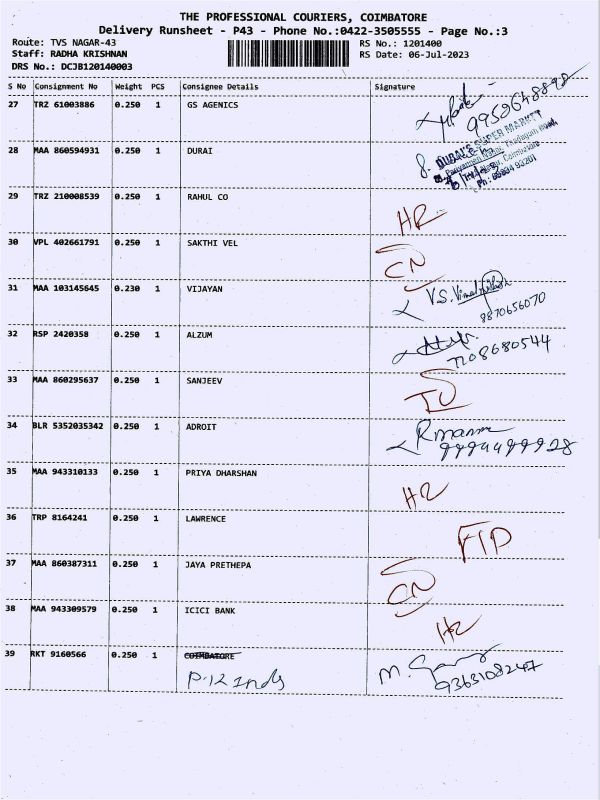 THE PROFESSIONAL COURIERS, COIMBATORE
Delivery Runsheet - P43 - Phone No.:0422-3505555 - Page No.:3
Route: TVS NAGAR-43 RS No.: 1201400
Staff: RADHA KRISHNAN RS Date: 06-Jul-2023
DRS No.: DCJB120140003
S No Consignment No Weight PCS Consignee Details Signature
27 TRZ 61003886 0.250 1 GS AGENICS
9952648898
28 MAA 860594931 0.250 1 DURAI
DURAI'S SUPER MARKET
29 TRZ 210008539 0.250 1 RAHUL CO
HR
30 VPL 402661791 0.250 1 SAKTHI VEL
CN
31 MAA 103145645 0.230 1 VIJAYAN V.S.
8870656070
32 RSP 2420358 0.250 1 ALZUM
7208680544
33 MAA 860295637 0.250 1 SANJEEV
34 BLR 5352035342 0.250 1 ADROIT
9994499928
35 MAA 943310133 0.250 1 PRIYA DHARSHAN
36 TRP 8164241 0.250 1 LAWRENCE
37 MAA 860387311 0.250 1 JAYA PRETHEPA
CN
38 MAA 943309579 0.250 1 ICICI BANK
39 RKT 9160566 0.250 1 COIMBATORE
P.12 Inds 9363108247